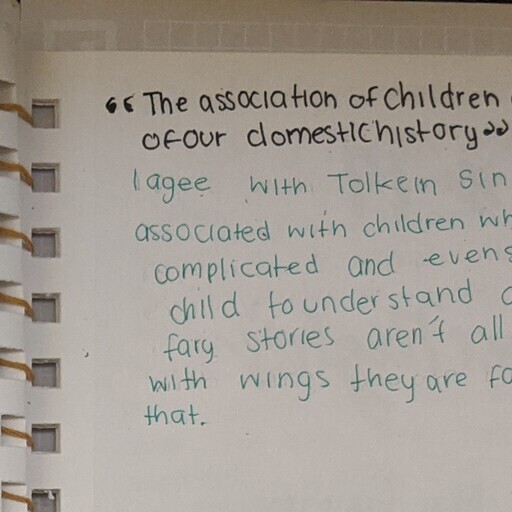 “ The association of children
of our domestic history ”
I agee with Tolkein Sin
associated with children wh
complicated and evens
child to understand
fary stories aren't all
with wings they are fo
that.